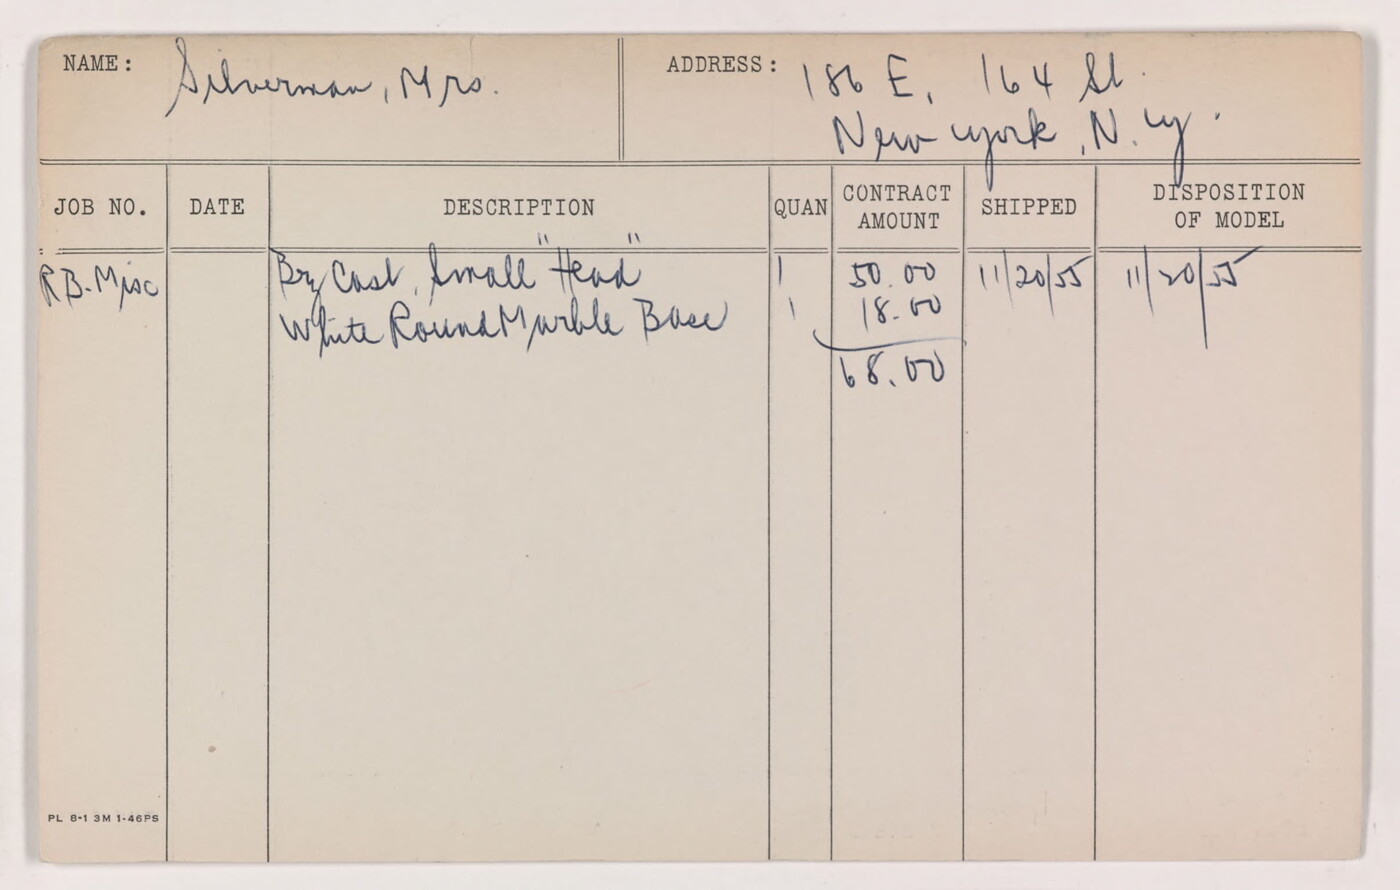 NAME: Silverman, Mrs. ADDRESS: 186 E. 164 St.
New York, N.Y.
JOB NO. DATE DESCRIPTION QUAN CONTRACT AMOUNT SHIPPED DISPOSITION OF MODEL
RB-Misc Bz Cast, Small "Head" 1 50.00 11/20/55 11/20/55
White Round Marble Base 1 18.00
68.00
PL 8-1 3M 1-46PS